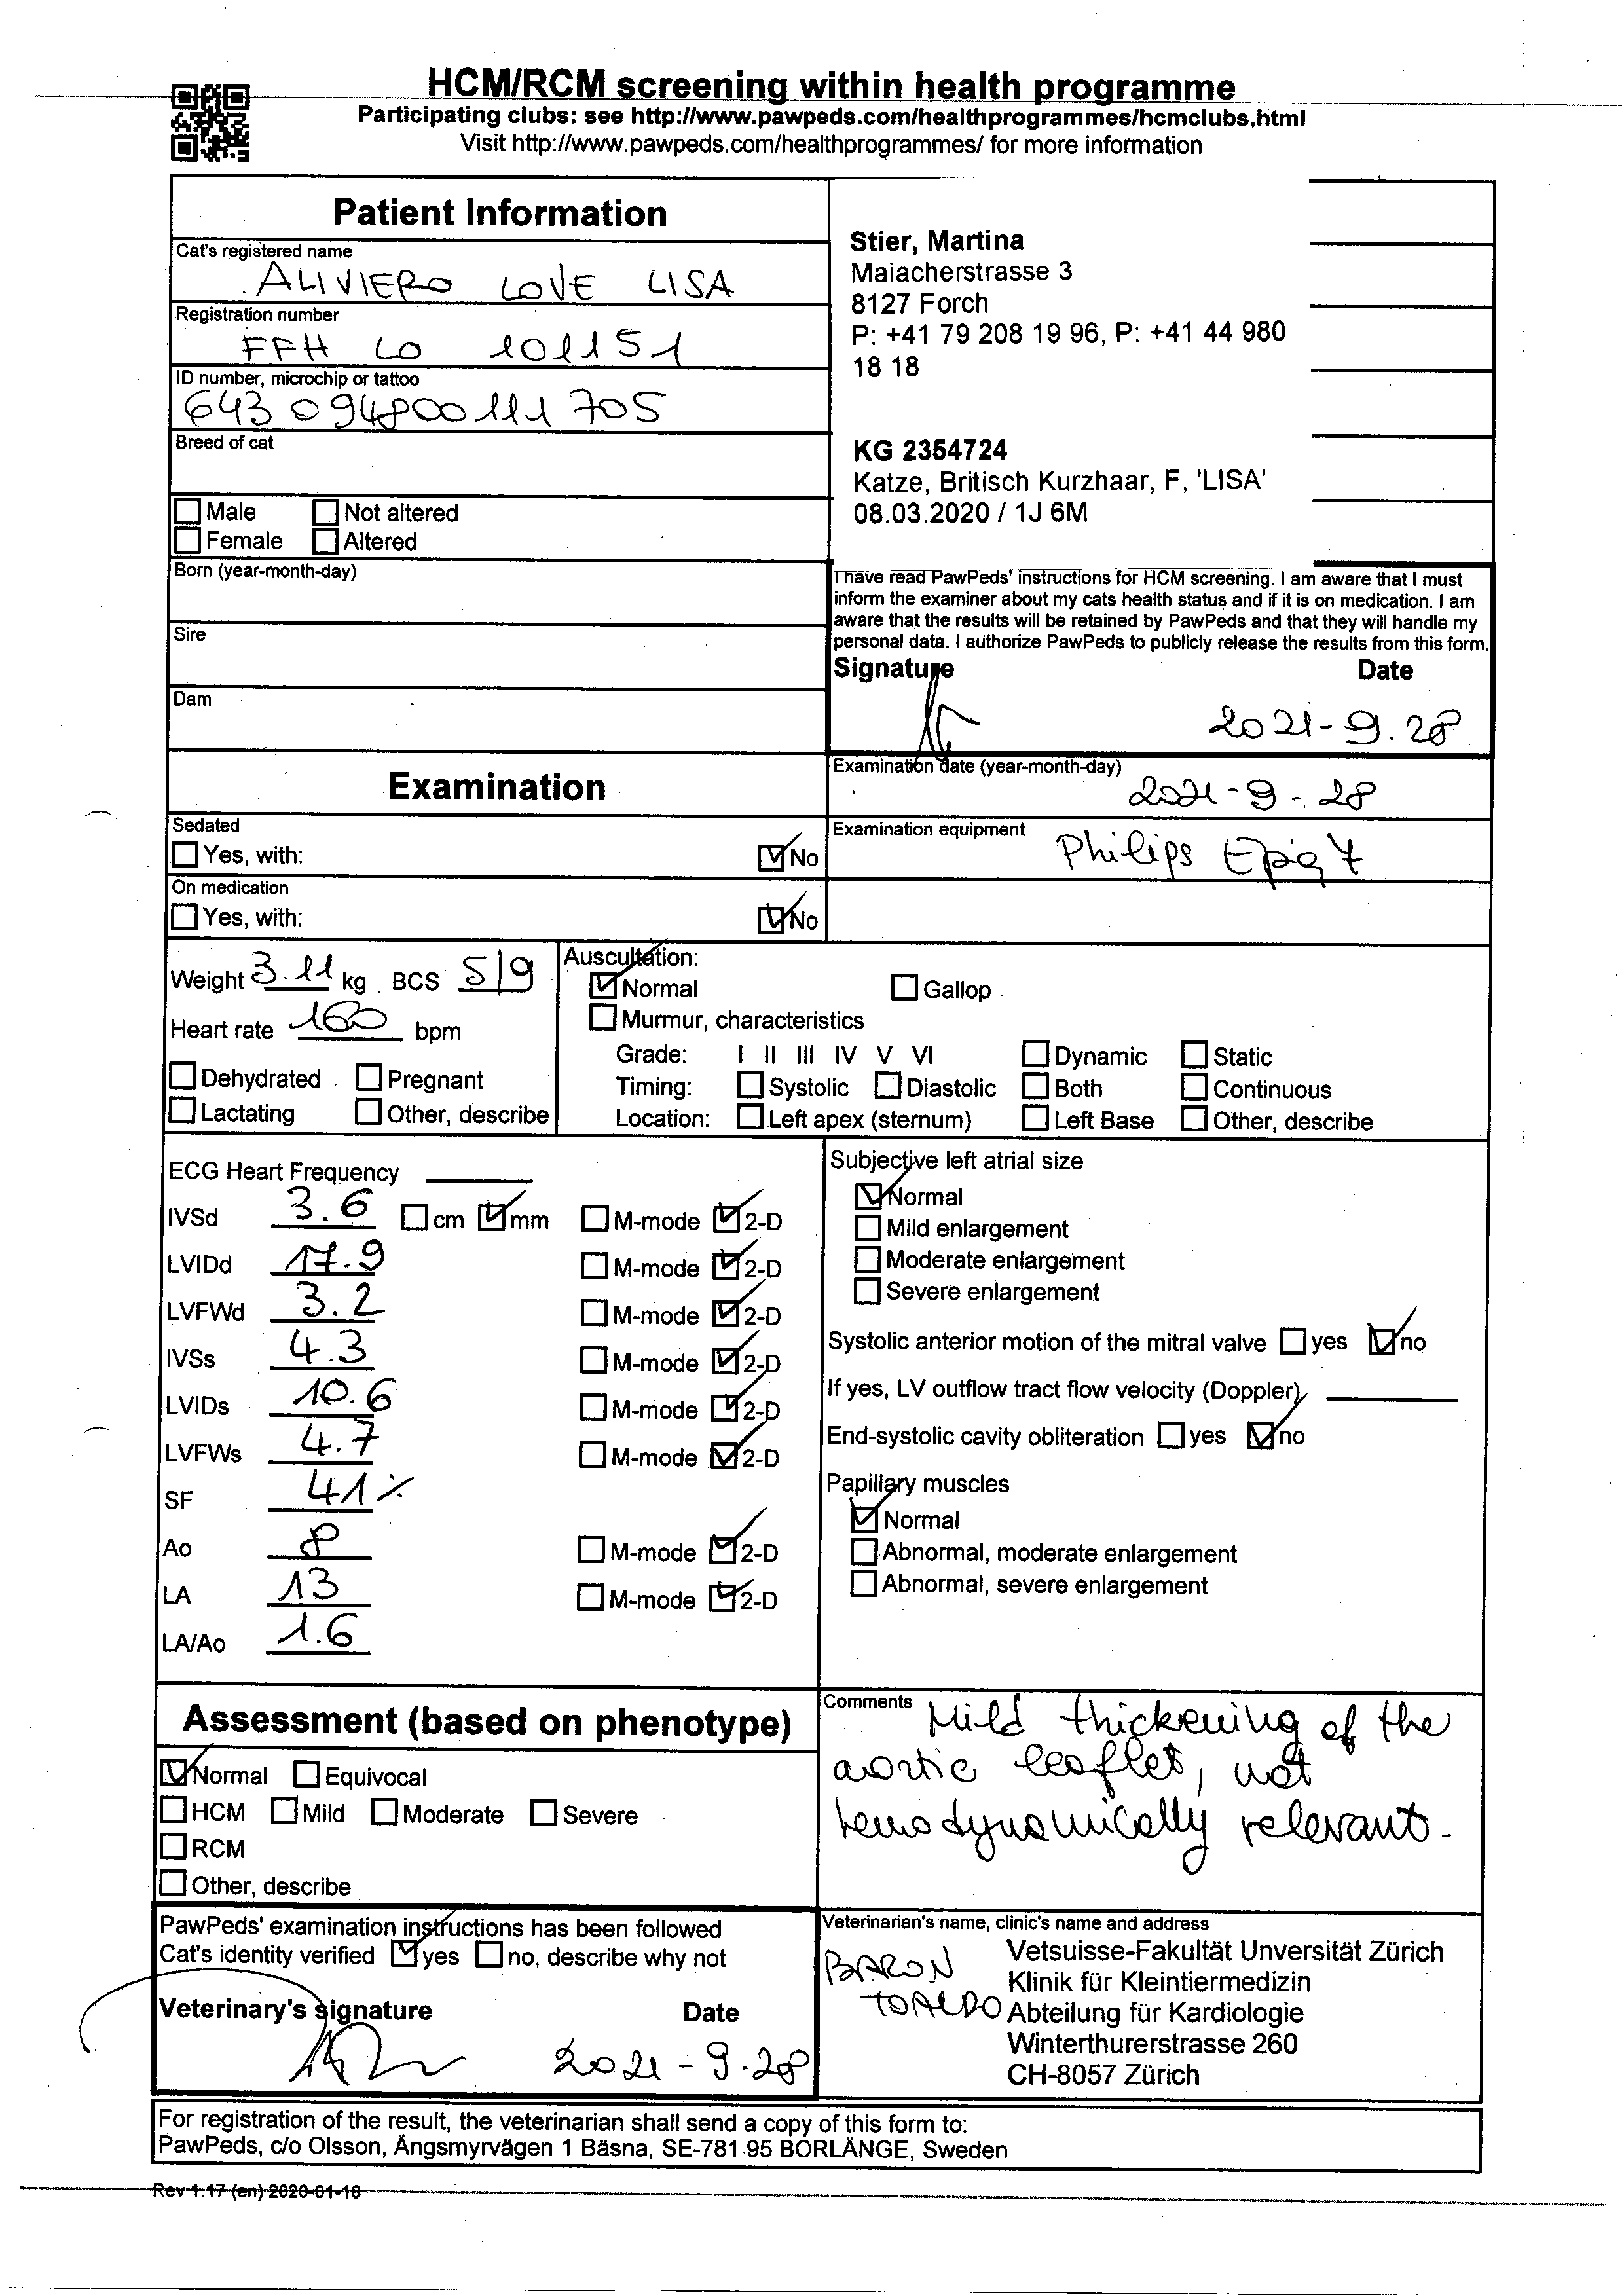 HCM/RCM screening within health programme
Participating clubs: see http://www.pawpeds.com/healthprogrammes/hcmclubs.html
Visit http://www.pawpeds.com/healthprogrammes/ for more information
Patient Information
Cat's registered name
ALIVIERO LOVE LISA
Registration number
FFH LO 101151
ID number, microchip or tattoo
643 094800111705
Breed of cat
Male Not altered
Female Altered
Born (year-month-day)
Sire
Dam
Stier, Martina
Maiacherstrasse 3
8127 Forch
P: +41 79 208 19 96, P: +41 44 980
18 18
KG 2354724
Katze, Britisch Kurzhaar, F, 'LISA'
08.03.2020 / 1J 6M
I have read PawPeds' instructions for HCM screening. I am aware that I must
inform the examiner about my cats health status and if it is on medication. I am
aware that the results will be retained by PawPeds and that they will handle my
personal data. I authorize PawPeds to publicly release the results from this form.
Signature Date
2021-9.28
Examination
Examination date (year-month-day)
2021-9-.28
Sedated
Yes, with: No
Examination equipment
Philips Epiq 7
On medication
Yes, with: No
Weight 3.11 kg BCS 5/9
Heart rate 160 bpm
Dehydrated Pregnant
Lactating Other, describe
Auscultation:
Normal Gallop
Murmur, characteristics
Grade: I II III IV V VI Dynamic Static
Timing: Systolic Diastolic Both Continuous
Location: Left apex (sternum) Left Base Other, describe
ECG Heart Frequency
IVSd 3.6 cm mm M-mode 2-D
LVIDd 17.9 M-mode 2-D
LVFWd 3.2 M-mode 2-D
IVSs 4.3 M-mode 2-D
LVIDs 10.6 M-mode 2-D
LVFWs 4.7 M-mode 2-D
SF 41%
Ao 8 M-mode 2-D
LA 13 M-mode 2-D
LA/Ao 1.6
Subjective left atrial size
Normal
Mild enlargement
Moderate enlargement
Severe enlargement
Systolic anterior motion of the mitral valve yes no
If yes, LV outflow tract flow velocity (Doppler)
End-systolic cavity obliteration yes no
Papillary muscles
Normal
Abnormal, moderate enlargement
Abnormal, severe enlargement
Assessment (based on phenotype)
Normal Equivocal
HCM Mild Moderate Severe
RCM
Other, describe
Comments Mild thickening of the
aortic leaflet, not
hemodynamically relevant.
PawPeds' examination instructions has been followed
Cat's identity verified yes no, describe why not
Veterinary's signature Date
2021-9.28
Veterinarian's name, clinic's name and address
BARON
TOALDO
Vetsuisse-Fakultät Unversität Zürich
Klinik für Kleintiermedizin
Abteilung für Kardiologie
Winterthurerstrasse 260
CH-8057 Zürich
For registration of the result, the veterinarian shall send a copy of this form to:
PawPeds, c/o Olsson, Ängsmyrvägen 1 Bäsna, SE-781 95 BORLÄNGE, Sweden
Rev 1.17 (en) 2020-01-18